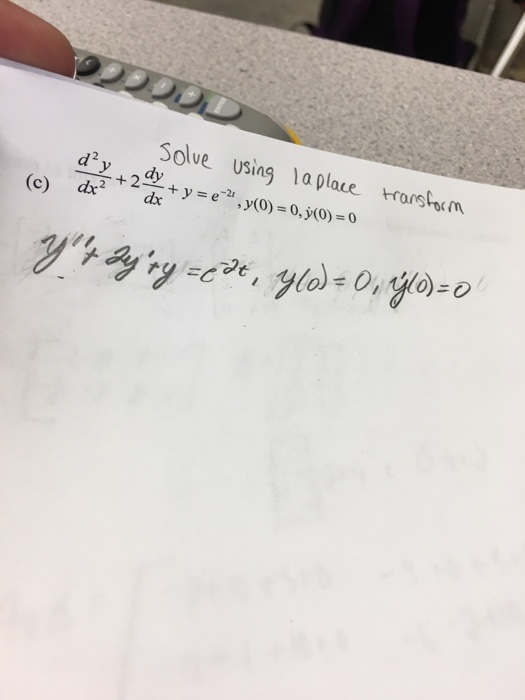 Solve using laplace transform
(c) d²y/dx² + 2 dy/dx + y = e⁻²ᵗ, y(0) = 0, ẏ(0) = 0
y'' + 2y' + y = e⁻²ᵗ, y(0) = 0, ẏ(0) = 0